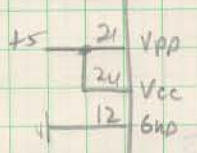 +5 21 Vpp
24 Vcc
12 Gnd